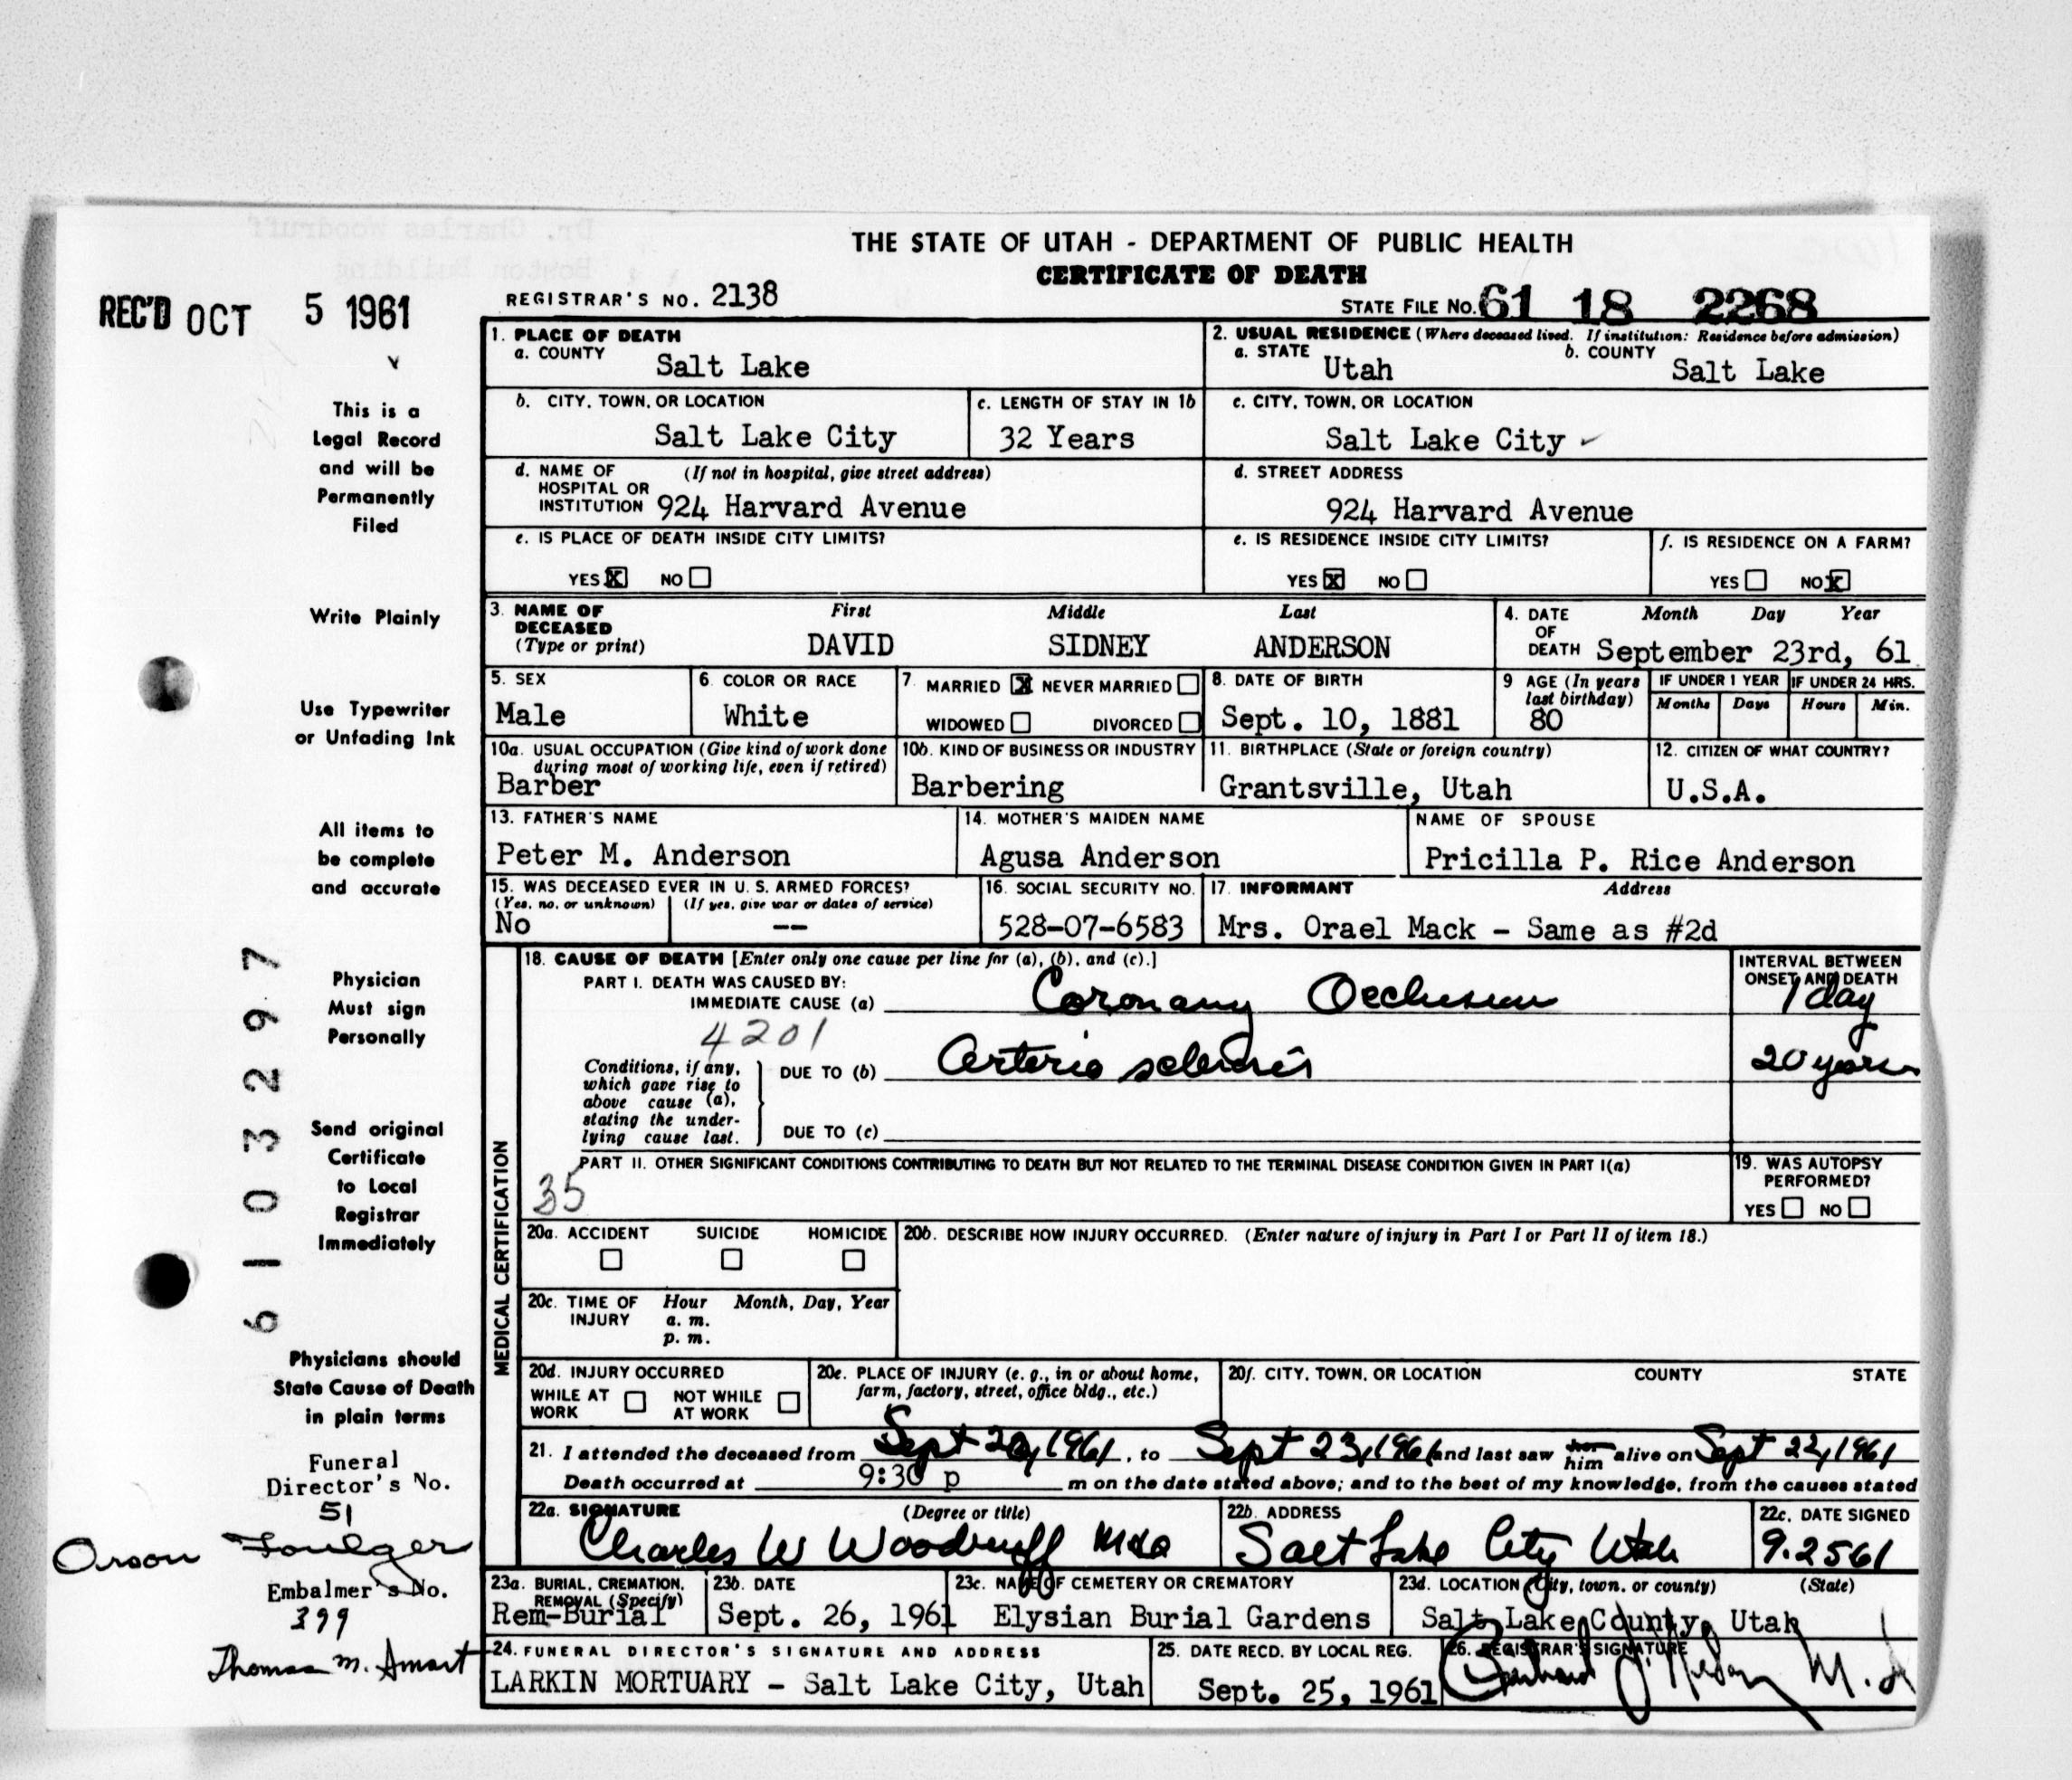 THE STATE OF UTAH - DEPARTMENT OF PUBLIC HEALTH
CERTIFICATE OF DEATH
REC'D OCT 5 1961
REGISTRAR'S NO. 2138
STATE FILE NO. 61 18 2268
This is a
Legal Record
and will be
Permanently
Filed
Write Plainly
Use Typewriter
or Unfading Ink
All items to
be complete
and accurate
Physician
Must sign
Personally
Send original
Certificate
to Local
Registrar
Immediately
Physicians should
State Cause of Death
in plain terms
Funeral
Director's No.
51
Orson Foulger
Embalmer's No.
399
Thomas M. Smart
6103297
1. PLACE OF DEATH
a. COUNTY Salt Lake
2. USUAL RESIDENCE (Where deceased lived. If institution: Residence before admission)
a. STATE Utah b. COUNTY Salt Lake
b. CITY, TOWN, OR LOCATION Salt Lake City
c. LENGTH OF STAY IN 1b 32 Years
c. CITY, TOWN, OR LOCATION Salt Lake City
d. NAME OF HOSPITAL OR INSTITUTION (If not in hospital, give street address) 924 Harvard Avenue
d. STREET ADDRESS 924 Harvard Avenue
e. IS PLACE OF DEATH INSIDE CITY LIMITS?
YES X NO
e. IS RESIDENCE INSIDE CITY LIMITS?
YES X NO
f. IS RESIDENCE ON A FARM?
YES NO X
3. NAME OF DECEASED (Type or print)
First Middle Last
DAVID SIDNEY ANDERSON
4. DATE OF DEATH Month Day Year
September 23rd, 61
5. SEX Male
6. COLOR OR RACE White
7. MARRIED X NEVER MARRIED
WIDOWED DIVORCED
8. DATE OF BIRTH Sept. 10, 1881
9 AGE (In years last birthday) 80
IF UNDER 1 YEAR Months Days
IF UNDER 24 HRS. Hours Min.
10a. USUAL OCCUPATION (Give kind of work done during most of working life, even if retired) Barber
10b. KIND OF BUSINESS OR INDUSTRY Barbering
11. BIRTHPLACE (State or foreign country) Grantsville, Utah
12. CITIZEN OF WHAT COUNTRY? U.S.A.
13. FATHER'S NAME Peter M. Anderson
14. MOTHER'S MAIDEN NAME Agusa Anderson
NAME OF SPOUSE Pricilla P. Rice Anderson
15. WAS DECEASED EVER IN U. S. ARMED FORCES?
(Yes, no, or unknown) (If yes, give war or dates of service)
No --
16. SOCIAL SECURITY NO. 528-07-6583
17. INFORMANT Address
Mrs. Orael Mack - Same as #2d
MEDICAL CERTIFICATION
18. CAUSE OF DEATH [Enter only one cause per line for (a), (b), and (c).]
INTERVAL BETWEEN ONSET AND DEATH
PART I. DEATH WAS CAUSED BY:
IMMEDIATE CAUSE (a) Coronary Occlusion 1 day
4201
Conditions, if any, which gave rise to above cause (a), stating the underlying cause last.
DUE TO (b) Arterio sclerosis 20 years
DUE TO (c)
PART II. OTHER SIGNIFICANT CONDITIONS CONTRIBUTING TO DEATH BUT NOT RELATED TO THE TERMINAL DISEASE CONDITION GIVEN IN PART I(a)
35
19. WAS AUTOPSY PERFORMED?
YES NO
20a. ACCIDENT SUICIDE HOMICIDE
20b. DESCRIBE HOW INJURY OCCURRED. (Enter nature of injury in Part I or Part II of item 18.)
20c. TIME OF INJURY Hour Month, Day, Year
a. m.
p. m.
20d. INJURY OCCURRED
WHILE AT WORK NOT WHILE AT WORK
20e. PLACE OF INJURY (e. g., in or about home, farm, factory, street, office bldg., etc.)
20f. CITY, TOWN, OR LOCATION COUNTY STATE
21. I attended the deceased from Sept 20, 1961, to Sept 23, 1961 and last saw her him alive on Sept 22, 1961
Death occurred at 9:30 p m on the date stated above; and to the best of my knowledge, from the causes stated
22a. SIGNATURE (Degree or title)
Charles W Woodruff
22b. ADDRESS Salt Lake City Utah
22c. DATE SIGNED 9.25 61
23a. BURIAL, CREMATION, REMOVAL (Specify) Rem-Burial
23b. DATE Sept. 26, 1961
23c. NAME OF CEMETERY OR CREMATORY Elysian Burial Gardens
23d. LOCATION (City, town, or county) (State)
Salt Lake County, Utah
24. FUNERAL DIRECTOR'S SIGNATURE AND ADDRESS
LARKIN MORTUARY - Salt Lake City, Utah
25. DATE RECD. BY LOCAL REG. Sept. 25, 1961
26. REGISTRAR'S SIGNATURE